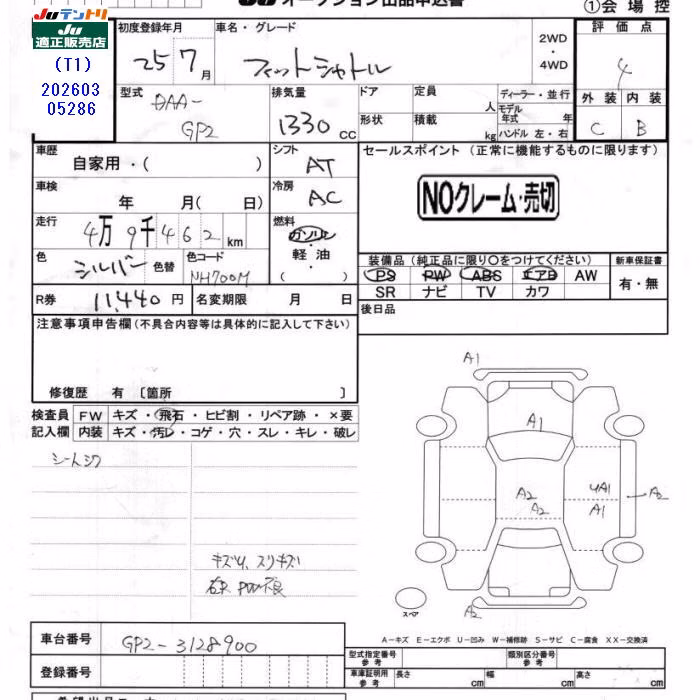 Juテントリ
Ju
適正販売店
(T1)
202603
05286
Ju オークション出品申込書
①会場控
初度登録年月
25 7月
車名・グレード
フィットシャトル
2WD
・
4WD
評価点
4
外装 内装
C B
型式
DAA-
GP2
排気量
1330 cc
ドア
定員
人
形状
積載
kg
ディーラー・並行
モデル
年式 年
ハンドル 左・右
車歴
自家用・( )
シフト
AT
セールスポイント (正常に機能するものに限ります)
NOクレーム・売切
車検
年 月( 日)
冷房
AC
走行
4万9千462 km
燃料
ガソリン
軽油
( )
色
シルバー 色替
色コード
NH700M
装備品 (純正品に限り〇をつけてください)
PS PW ABS エアB AW
SR ナビ TV カワ
新車保証書
有・無
R券 11,440 円
名変期限 月 日
後日品
注意事項申告欄 (不具合内容等は具体的に記入して下さい)
修復歴 有〔箇所 〕
検査員
記入欄
FW キズ・飛石・ヒビ割・リペア跡・×要
内装 キズ・汚レ・コゲ・穴・スレ・キレ・破レ
シートシワ
キズU、スリキズ
右R PW不良
A1
A1
A2
A2
UA1
A1
A2
A2
スペア
A-キズ E-エクボ U-凹み W-補修跡 S-サビ C-腐食 XX-交換済
車台番号 GP2-3128900
登録番号
型式指定番号
参考
類別区分番号
参考
車庫証明用
参考
長さ cm
幅 cm
高さ cm